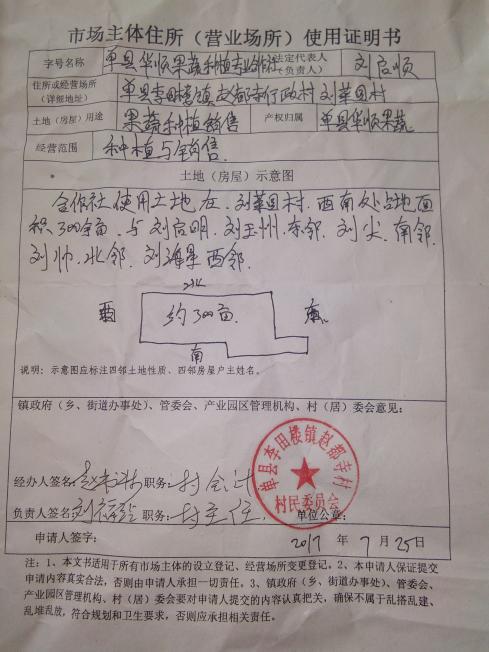 市场主体住所（营业场所）使用证明书
字号名称 单县华顺果蔬种植专业合作社 法定代表人（负责人） 刘启顺
住所或经营场所（详细地址） 单县李田楼镇赵都寺行政村刘菜园村
土地（房屋）用途 果蔬种植销售 产权归属 单县华顺果蔬
经营范围 种植与销售
土地（房屋）示意图
合作社使用土地在刘菜园村，西南处占地面
积300余亩，与刘启明、刘玉州，东邻，刘尖，南邻
刘帅，北邻，刘海星西邻。
北
西 约300亩 东
南
说明：示意图应标注四邻土地性质、四邻房屋户主姓名。
镇政府（乡、街道办事处）、管委会、产业园区管理机构、村（居）委会意见：
单县李田楼镇赵都寺村
村民委员会
经办人签名： 职务：村会计
负责人签名： 职务：村主任 单位公章：
申请人签字： 2017年7月25日
注：1、本文书适用于所有市场主体的设立登记、经营场所变更登记。2、本申请人保证提交
申请内容真实合法，否则由申请人承担一切责任。3、镇政府（乡、街道办事处）、管委会、
产业园区管理机构、村（居）委会要对申请人提交的内容认真把关，确保不属于乱搭乱建、
乱堆乱放，符合规划和卫生要求，否则应承担相关责任。